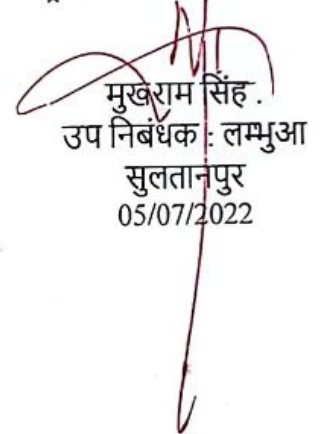 मुखराम सिंह .
उप निबंधक : लम्भुआ
सुलतानपुर
05/07/2022